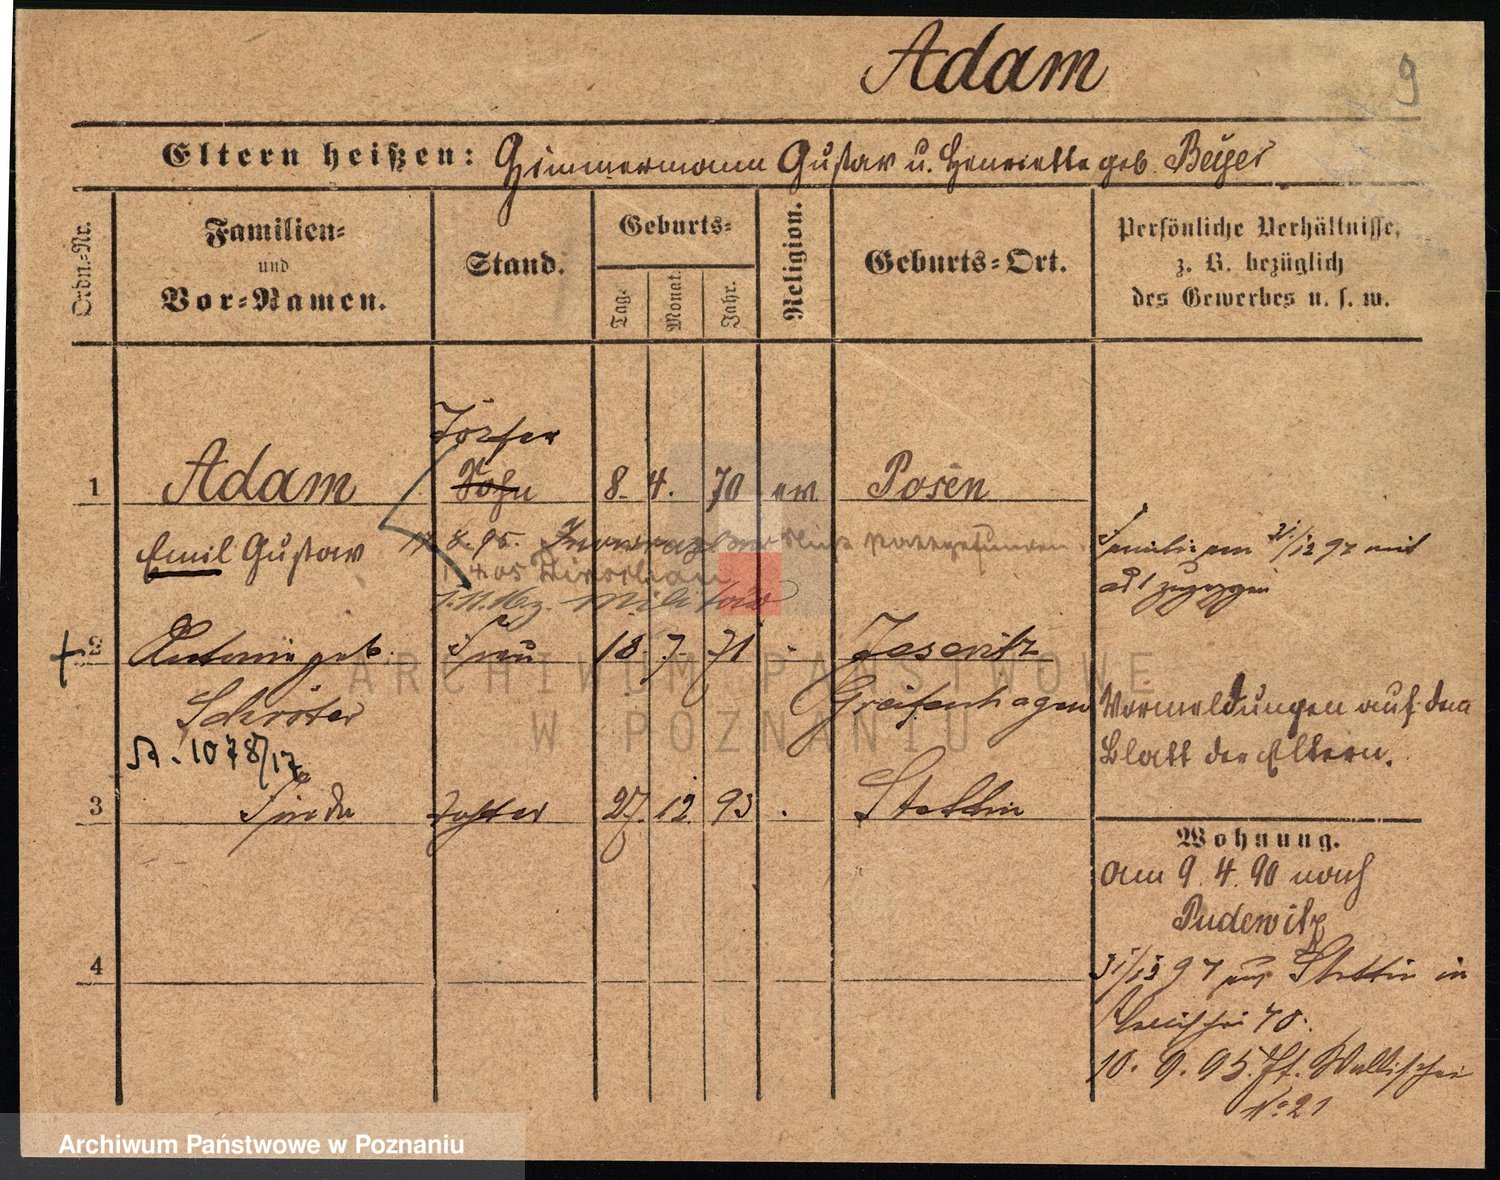 Adam
9
Eltern heißen: Zimmermann Gustav u. Henriette geb. Beyer
Ordn.-Nr.
Familien-
und
Vor-Namen.
Stand.
Geburts-
Tag.
Monat.
Jahr.
Religion.
Geburts-Ort.
Persönliche Verhältnisse,
z. B. bezüglich
des Gewerbes u. s. w.
1 Adam Sohn 8. 4. 70 ev. Posen
Emil Gustav
95.
Militär
Familie am 31/12 97 mit
zugezogen
2 Antonie geb. Frau 18. 7. 71 Jeseritz
Schröter Greifenhagen
A. 1078/17
Vormeldungen auf dem
Blatt der Eltern.
3 Frieda Tochter 27. 12. 93 Stettin
Wohnung.
am 9. 4. 90 nach
Pudewitz
31/12 97 aus Stettin in
10. 9. 95. Wallischei
No 21
4
ARCHIWUM PAŃSTWOWE
W POZNANIU
Archiwum Państwowe w Poznaniu